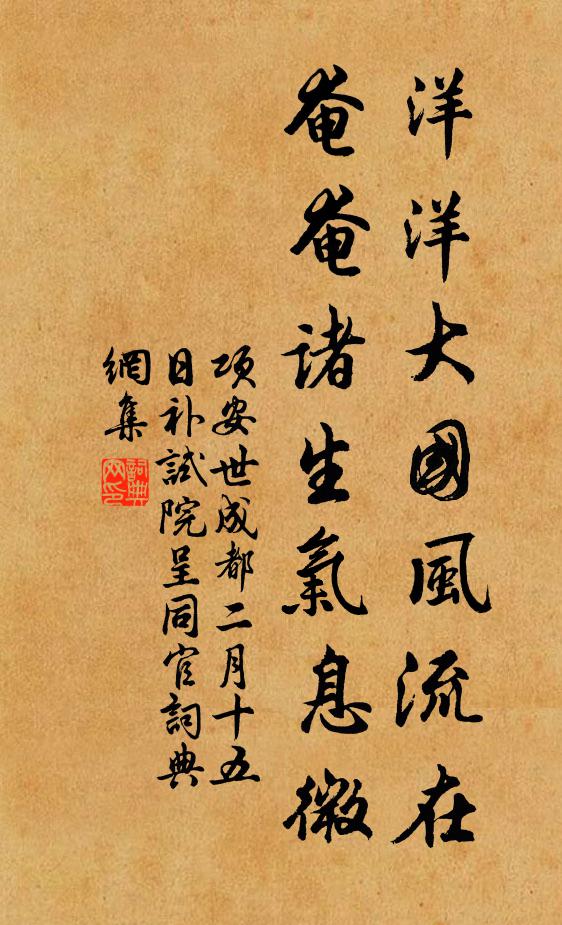 洋洋大國風流在
奄奄諸生氣息微
項安世成都二月十五
日补試院呈同官詞典
網集
詞典
网印